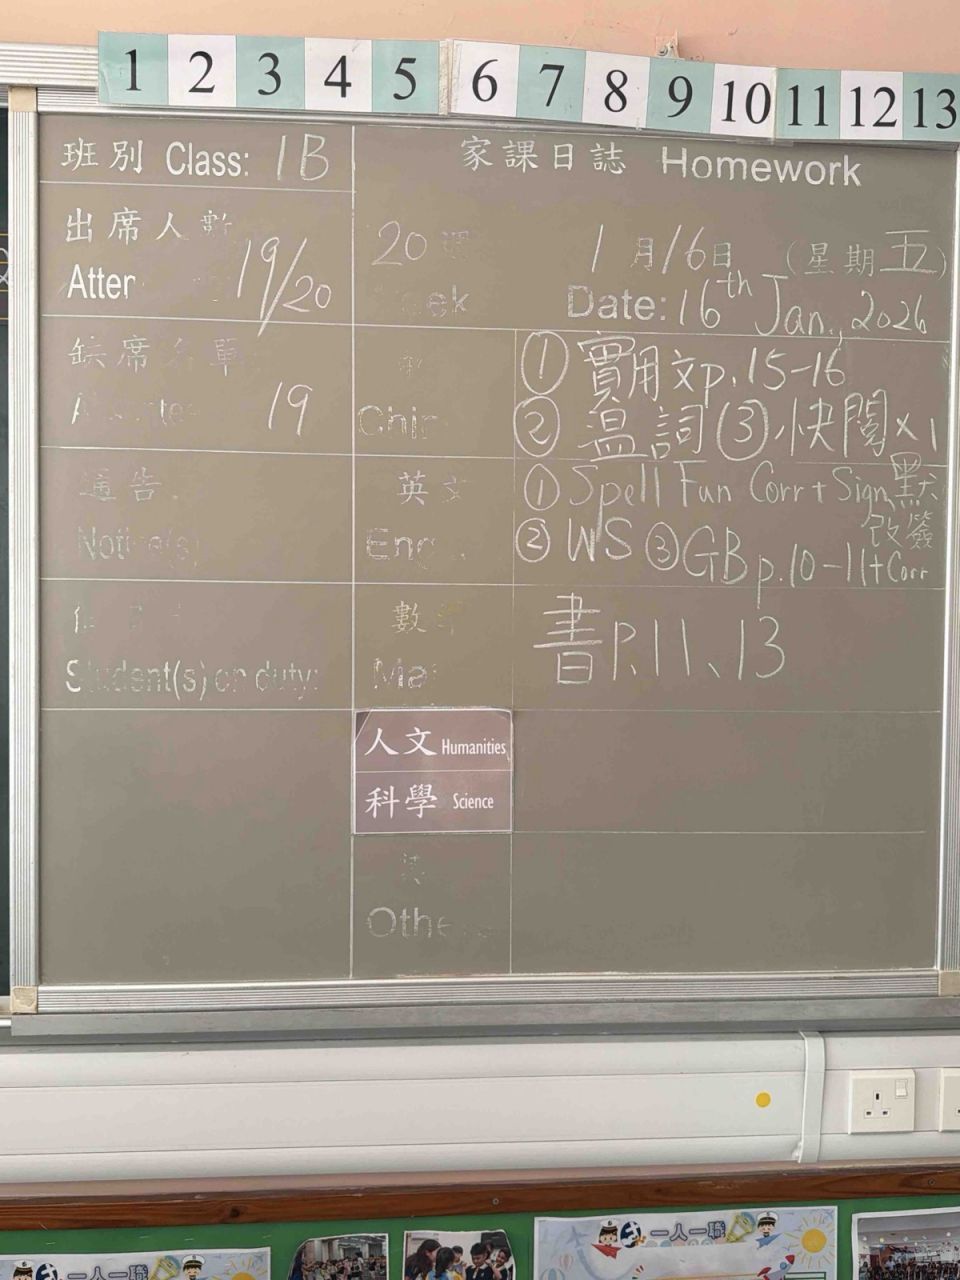 1 2 3 4 5 6 7 8 9 10 11 12 13
班別 Class: 1B
家課日誌 Homework
出席人數
Atter 19/20
20 週
eek
1月16日 (星期五)
Date: 16th Jan., 2026
缺席名單
19
Chin
① 實用文p.15-16
② 溫詞③、快閱x1
通告
Notice(s)
英文
Eng
① Spell Fun Corr + Sign 默
改簽
② WS ③ GB p.10-11+Corr
Student(s) on duty:
數
Ma
書P.11、13
人文 Humanities
科學 Science
Othe
一人一職
一人一職